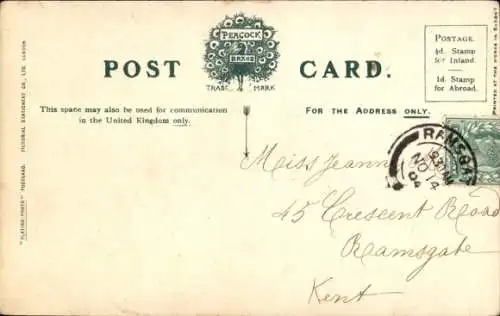 PEACOCK
BRAND
TRADE MARK
POST CARD.
POSTAGE.
½d. Stamp
for Inland.
1d. Stamp
for Abroad.
This space may also be used for communication
in the United Kingdom only.
FOR THE ADDRESS ONLY.
RAMSGA
NO 14
04
Miss Jeann
45 Crescent Road
Ramsgate
Kent
"PLATINO-PHOTO" POSTCARD. PICTORIAL STATIONERY CO., LTD. LONDON.
PRINTED AT THE WORKS IN SAXONY